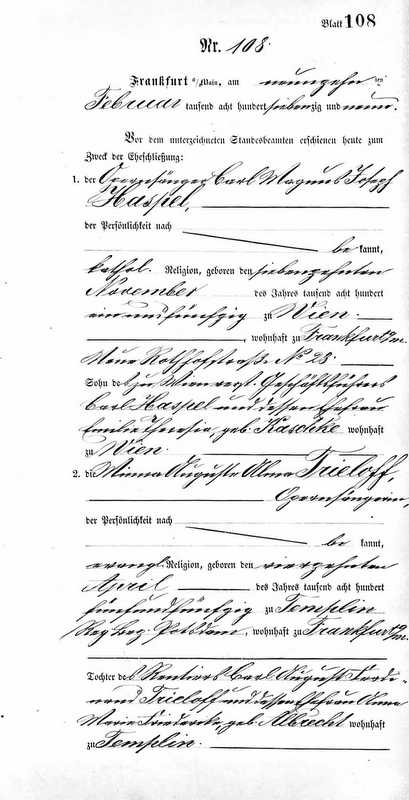 Blatt 108
Nr. 108.
Frankfurt a/Main, am neunzehnten
Februar tausend acht hundert siebenzig und neun.
Vor dem unterzeichneten Standesbeamten erschienen heute zum
Zweck der Eheschließung:
1. der Opernsänger Carl Magnus Joseph
Haspel,
der Persönlichkeit nach
be kannt,
kathol. Religion, geboren den siebenzehnten
November des Jahres tausend acht hundert
ein und fünfzig zu Wien
, wohnhaft zu Frankfurt a/M.
Neue Rothhofstraße No 28.
Sohn des zu Wien verst. Geschäftsführers
Carl Haspel und dessen Ehefrau
Emilie Theresia, geb. Kaschke wohnhaft
zu Wien.
2. die Minna Auguste Anna Trieloff,
Opernsängerin,
der Persönlichkeit nach
be kannt,
evangl. Religion, geboren den vierzehnten
April des Jahres tausend acht hundert
fünfundfünfzig zu Templin
Reg. Bez. Potsdam, wohnhaft zu Frankfurt a/M.
Tochter des Rentiers Carl August Ferdi-
nand Trieloff und dessen Ehefrau Anna
Marie Friedericke, geb. Albrecht wohnhaft
zu Templin.